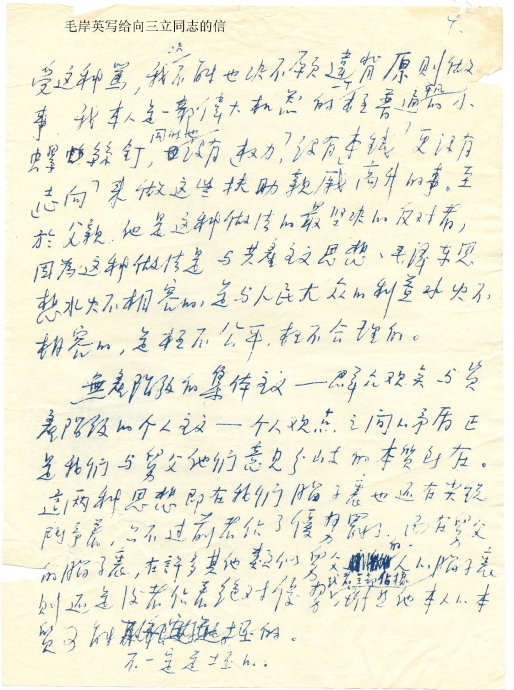 毛岸英写给向三立同志的信
7.
受这种骂，我决不能也决不愿違背原则做
事。我本人是一部偉大机器的一个极普通的小
螺絲釘，同时也没有"权力"，没有"本钱"，更没有
"志向"来做这些扶助親戚高升的事。至
於父親，他是这种做法的最坚决的反对者，
因為这种做法是与共產主义思想、毛澤东思
想水火不相容的，是与人民大众的利益水火不
相容的，是极不公平，极不合理的。
無產阶级的集体主义——群众观点与資
產阶级的个人主义——个人观点之间的矛盾正
是我们与舅父他们意見分歧的本質所在。
這两种思想即在我们腦子裏也还有尖锐
鬥争着，只不过前者佔了優势罷了。而在舅父
的腦子裏，在許多其他类似舅父的人的腦子裏
則还是後者佔着绝对優势，或者全部佔據，雖然他本人的本
質可能
不一定是坏的。